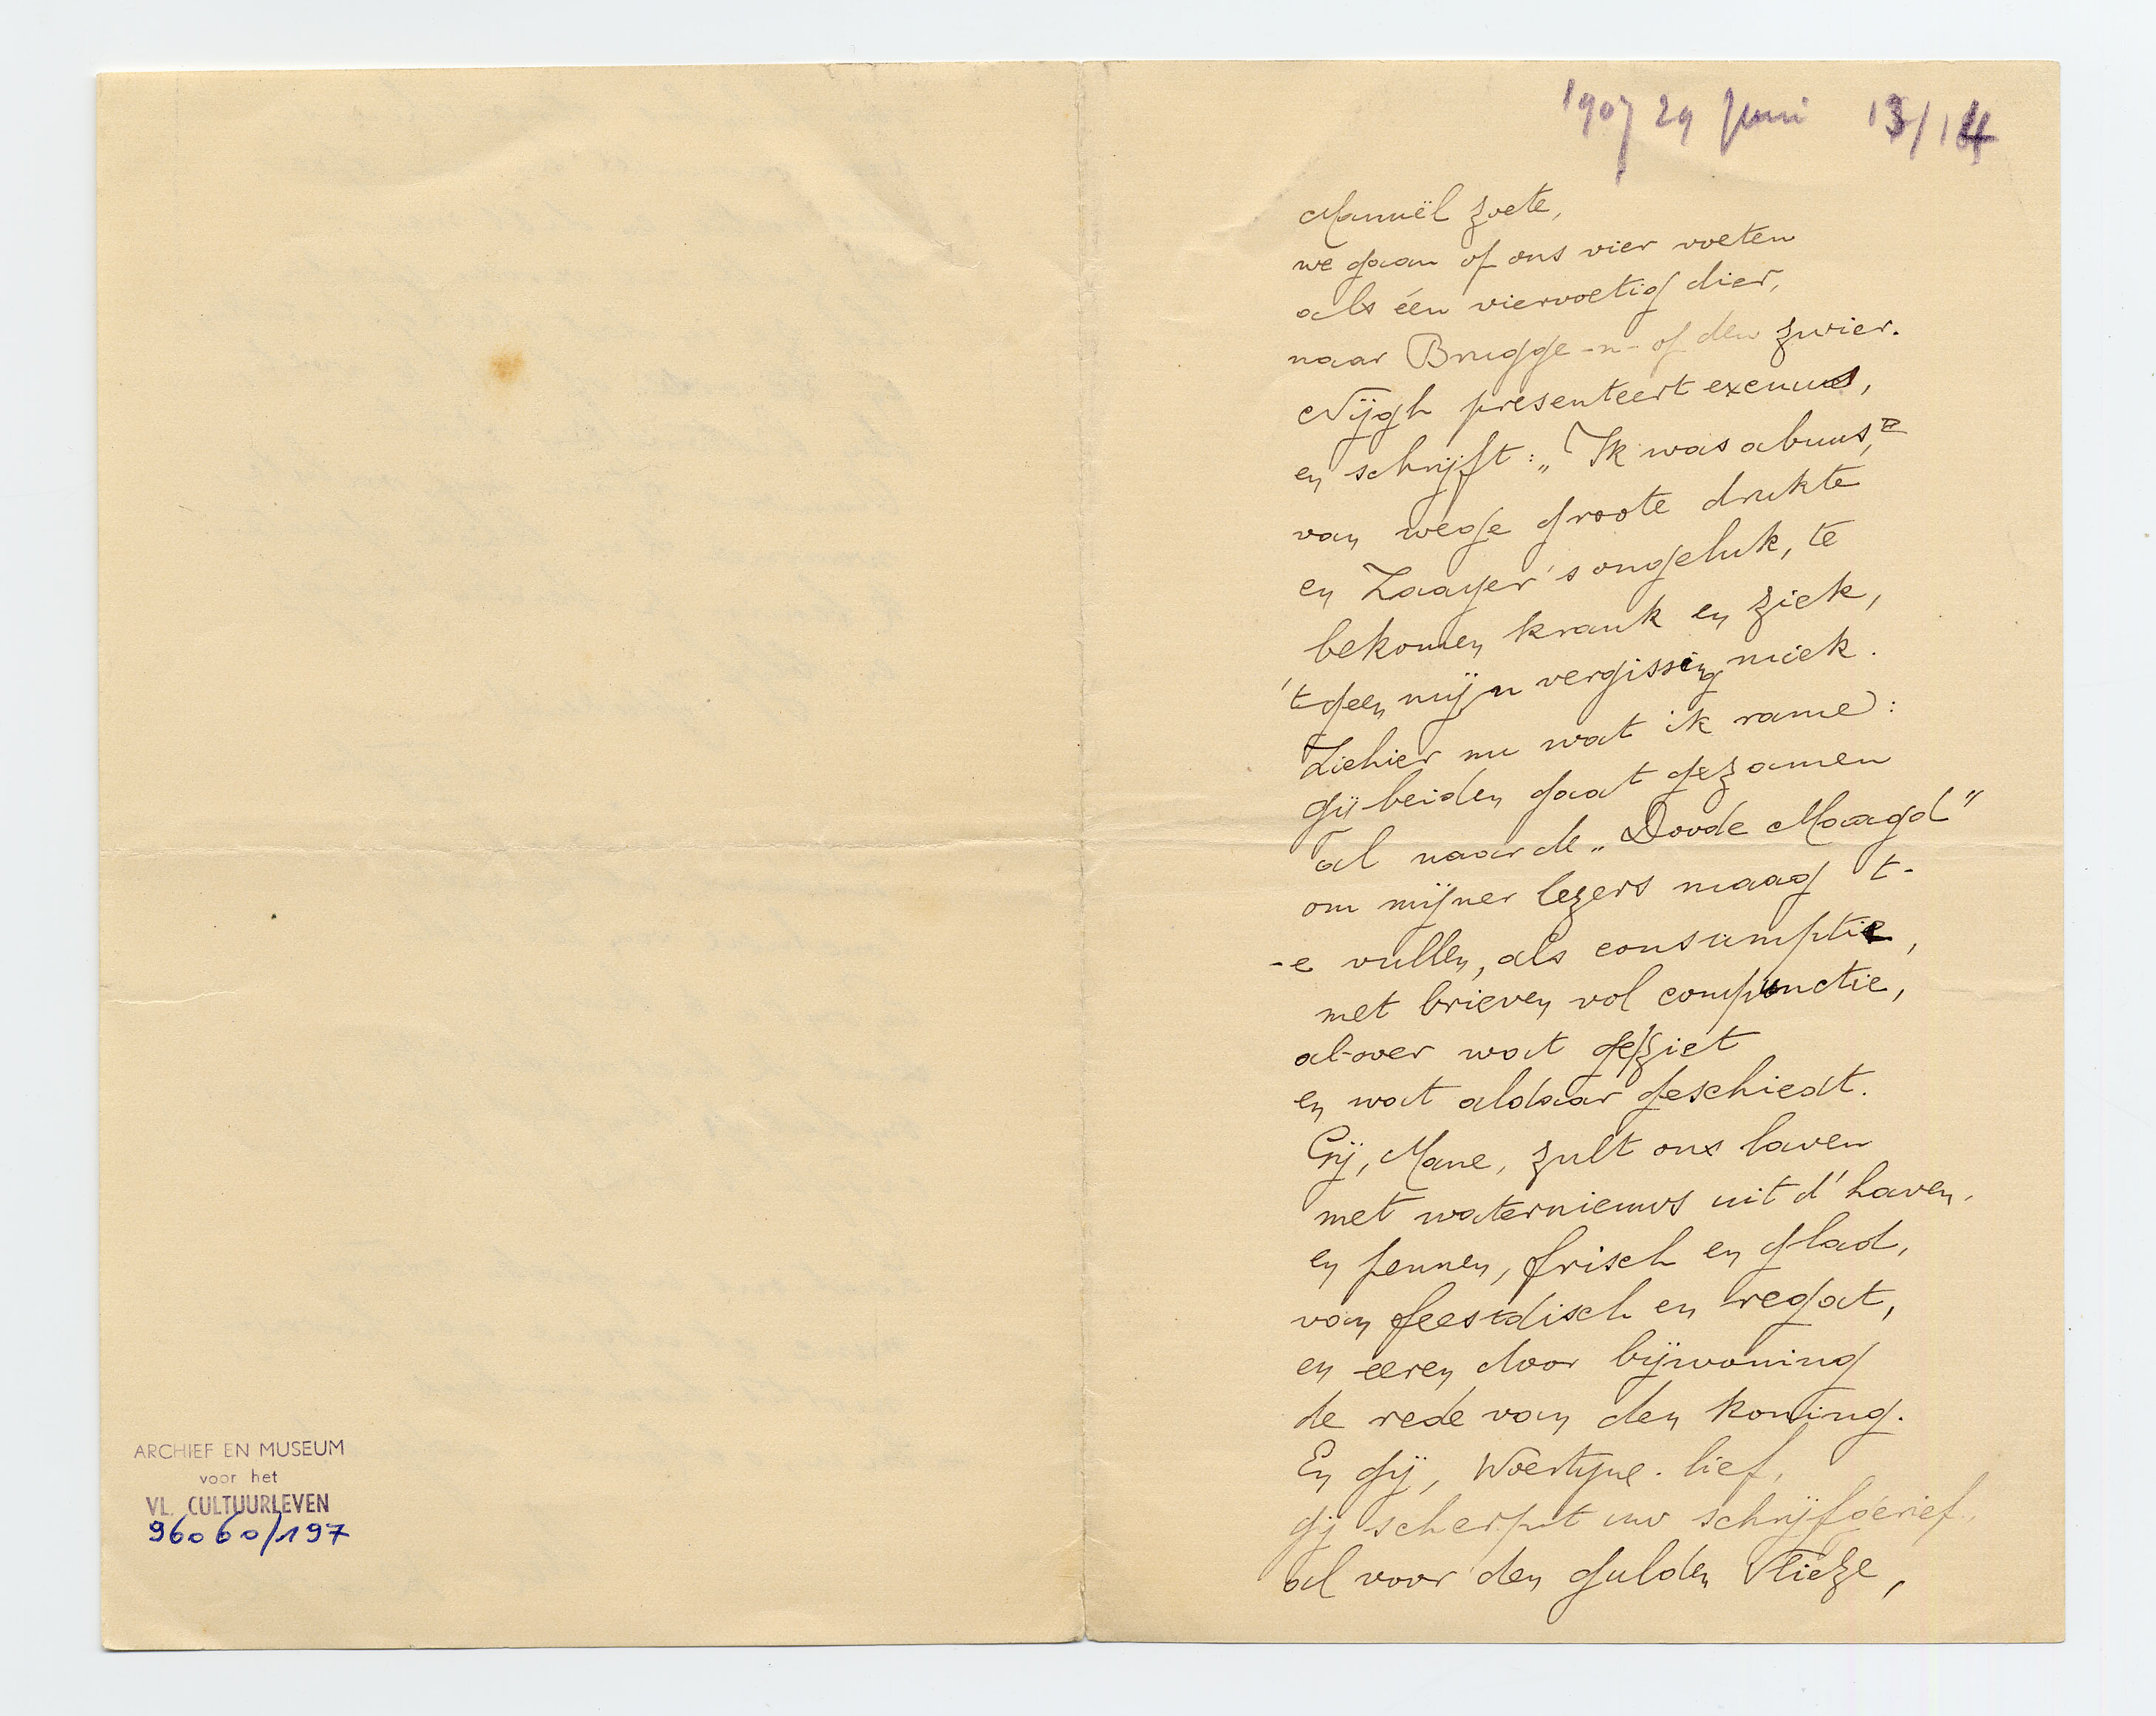 ARCHIEF EN MUSEUM
voor het
VL. CULTUURLEVEN
96060/197
1907 29 Juni 13/14
Manuël zoete,
we gaan op ons vier voeten
als één viervoetig dier,
naar Brugge -n- op den zwier.
Nijgh presenteert excuus,
en schrijft: „Ik was abuus,"
van wege groote drukte
en Zaayer's ongeluk, te
bekomen krank en ziek,
'tgeen mijn vergissing miek.
Ziehier nu wat ik rame:
gij beiden gaat gezamen
al naar de „Doode Maagd"
om mijner lezers maag t-
-e vullen, als consumptie,
met brieven vol compunctie,
al-over wat ge ziet
en wat aldaar geschiedt.
Gij, Mane, zult ons laven
met waternieuws uit d'haven.
en pennen, frisch en glad,
van feestdisch en regat,
en eeren door bijwoning
de rede van den koning.
En gij, Woestijne-lief,
gij scherpt uw schrijfgerief,
al voor den gulden Vlieze,